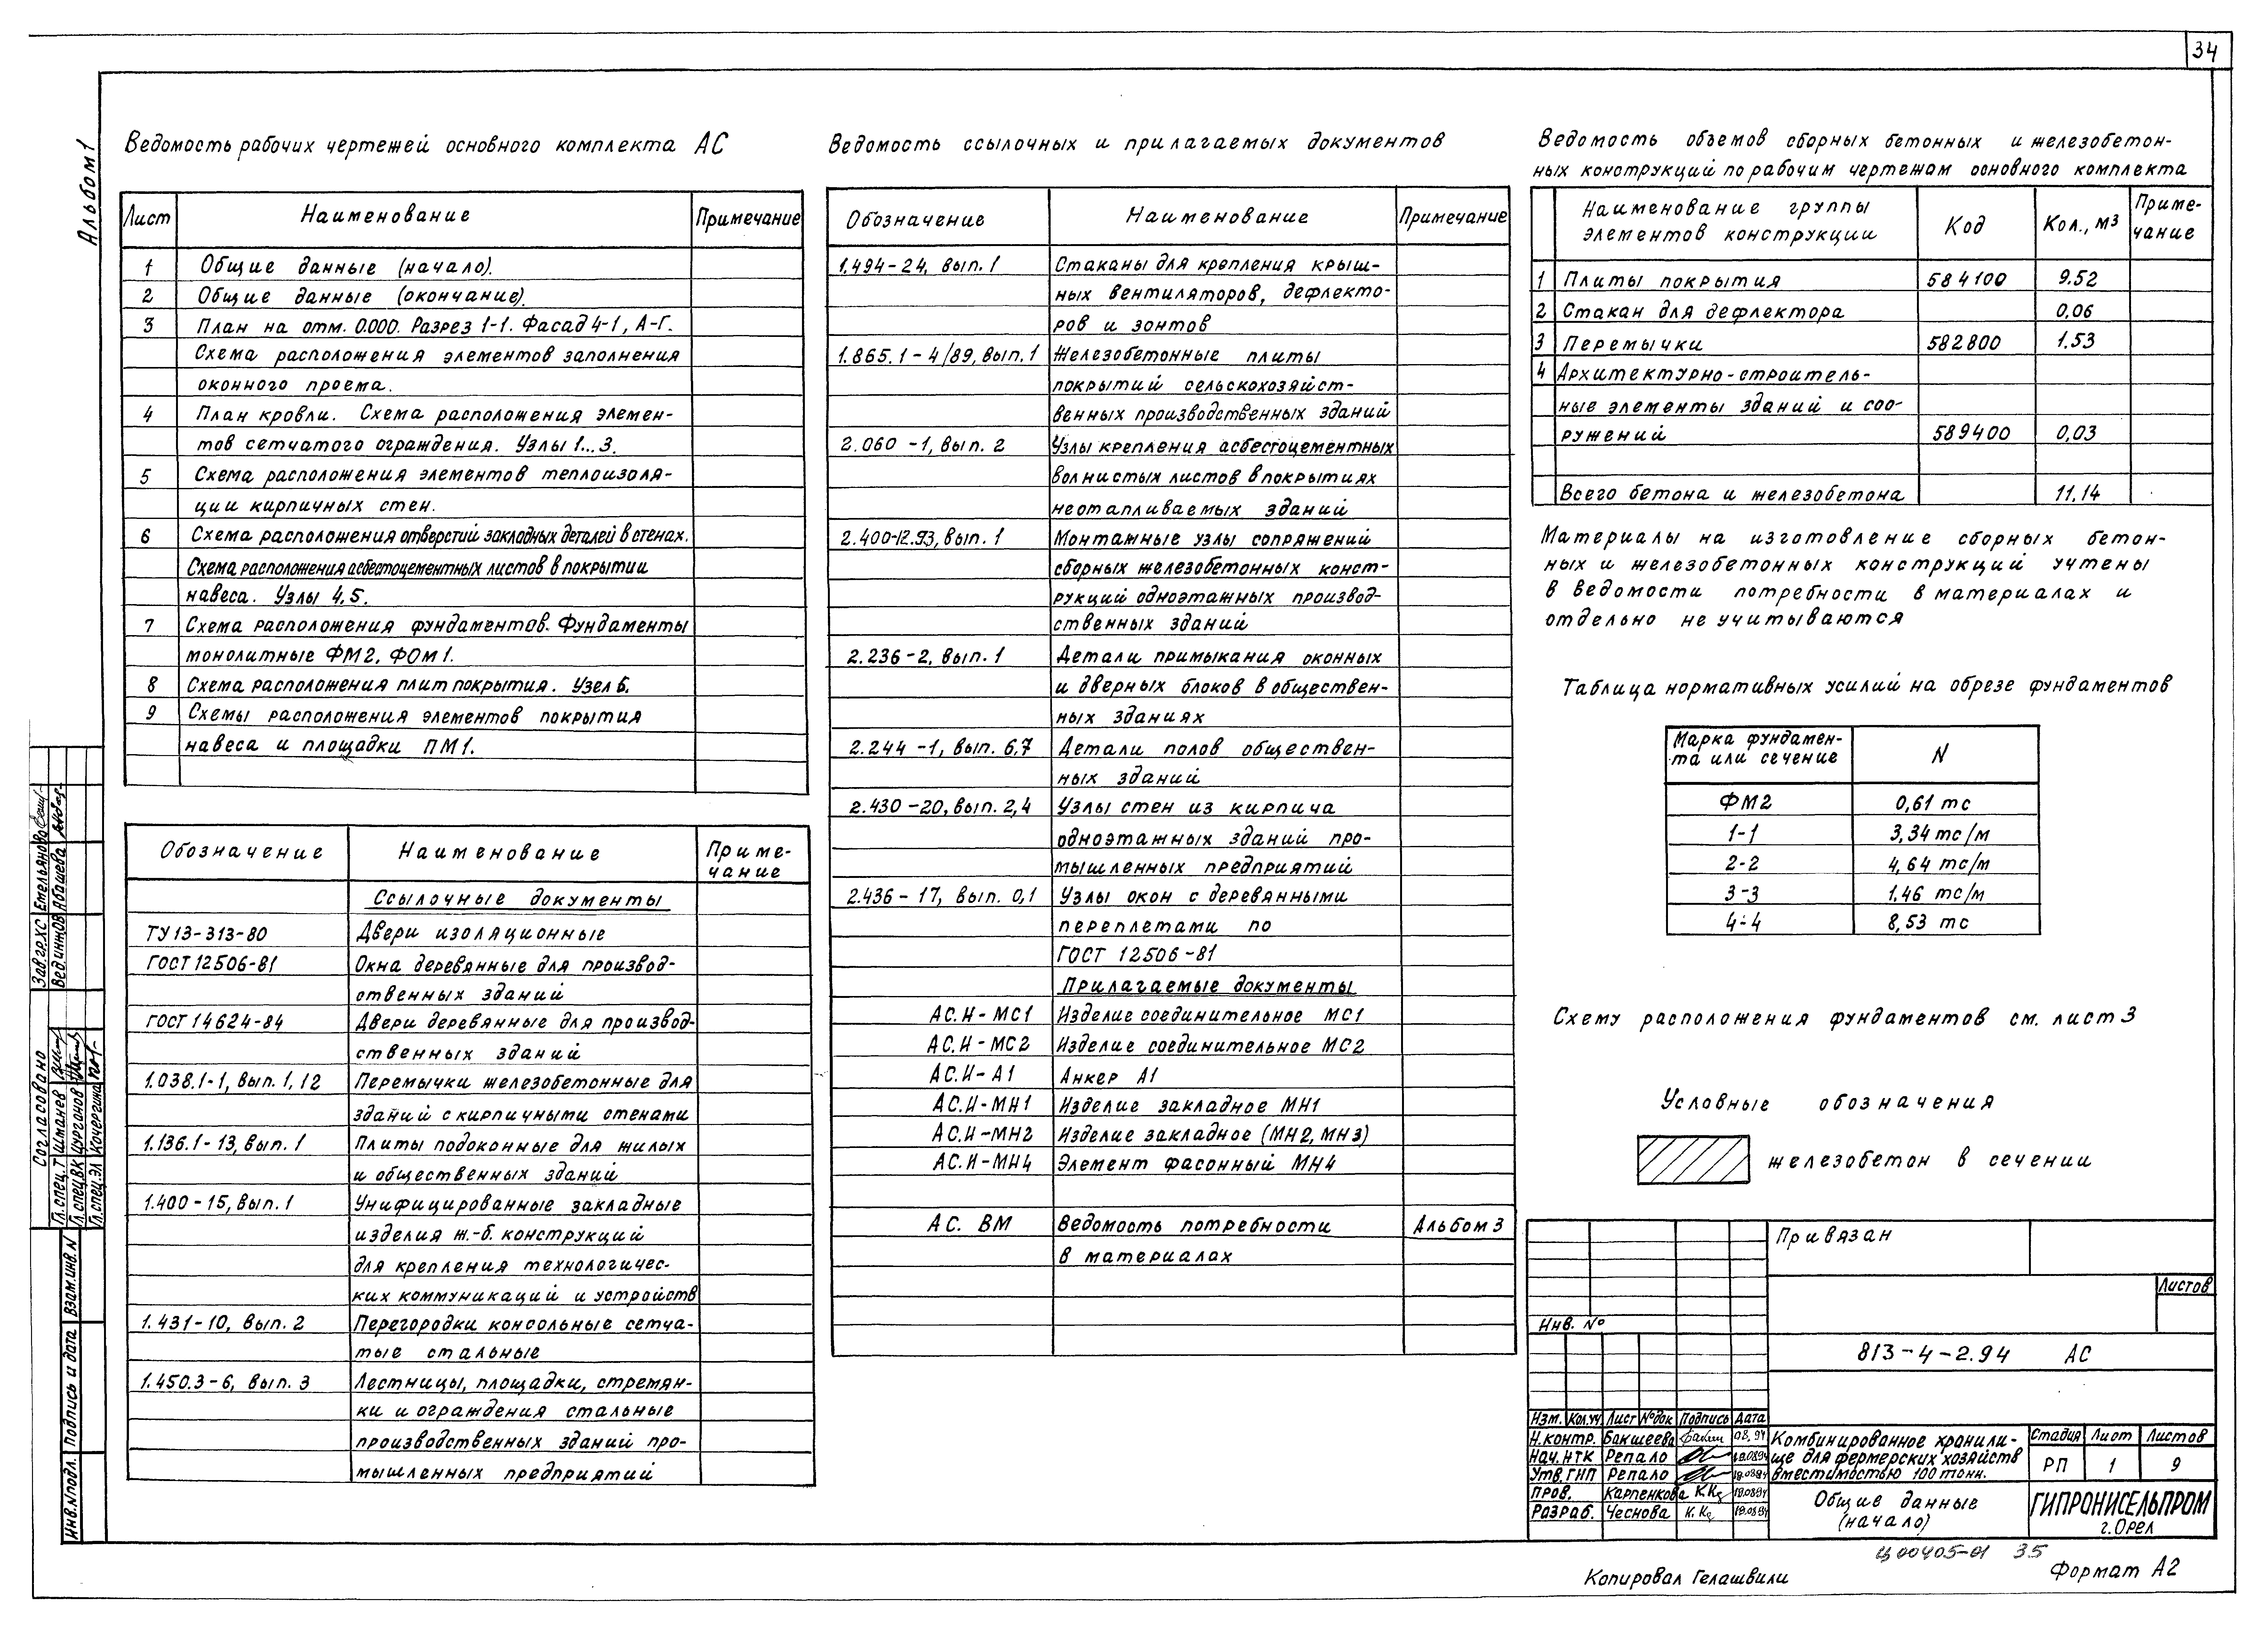 34
Альбом 1
Ведомость рабочих чертежей основного комплекта АС
Лист Наименование Примечание
1 Общие данные (начало).
2 Общие данные (окончание).
3 План на отм. 0.000. Разрез 1-1. Фасад 4-1, А-Г.
Схема расположения элементов заполнения
оконного проема.
4 План кровли. Схема расположения элемен-
тов сетчатого ограждения. Узлы 1...3.
5 Схема расположения элементов теплоизоля-
ции кирпичных стен.
6 Схема расположения отверстий закладных деталей в стенах.
Схема расположения асбестоцементных листов в покрытии
навеса. Узлы 4,5.
7 Схема расположения фундаментов. Фундаменты
монолитные ФМ2, ФОМ1.
8 Схема расположения плит покрытия. Узел 6.
9 Схемы расположения элементов покрытия
навеса и площадки ПМ1.
Обозначение Наименование Приме-
чание
Ссылочные документы
ТУ 13-313-80 Двери изоляционные
ГОСТ 12506-81 Окна деревянные для производ-
ственных зданий
ГОСТ 14624-84 Двери деревянные для производ-
ственных зданий
1.038.1-1, вып. 1, 12 Перемычки железобетонные для
зданий с кирпичными стенами
1.136.1-13, вып. 1 Плиты подоконные для жилых
и общественных зданий
1.400-15, вып. 1 Унифицированные закладные
изделия ж.-б. конструкций
для крепления технологичес-
ких коммуникаций и устройств
1.431-10, вып. 2 Перегородки консольные сетча-
тые стальные
1.450.3-6, вып. 3 Лестницы, площадки, стремян-
ки и ограждения стальные
производственных зданий про-
мышленных предприятий
Ведомость ссылочных и прилагаемых документов
Обозначение Наименование Примечание
1.494-24, вып. 1 Стаканы для крепления крыш-
ных вентиляторов, дефлекто-
ров и зонтов
1.865.1-4/89, вып. 1 Железобетонные плиты
покрытий сельскохозяйст-
венных производственных зданий
2.060-1, вып. 2 Узлы крепления асбестоцементных
волнистых листов в покрытиях
неотапливаемых зданий
2.400-12.93, вып. 1 Монтажные узлы сопряжений
сборных железобетонных конст-
рукций одноэтажных производ-
ственных зданий
2.236-2, вып. 1 Детали примыкания оконных
и дверных блоков в обществен-
ных зданиях
2.244-1, вып. 6,7 Детали полов обществен-
ных зданий
2.430-20, вып. 2,4 Узлы стен из кирпича
одноэтажных зданий про-
мышленных предприятий
2.436-17, вып. 0,1 Узлы окон с деревянными
переплетами по
ГОСТ 12506-81
Прилагаемые документы
АС.И-МС1 Изделие соединительное МС1
АС.И-МС2 Изделие соединительное МС2
АС.И-А1 Анкер А1
АС.И-МН1 Изделие закладное МН1
АС.И-МН2 Изделие закладное (МН2, МН3)
АС.И-МН4 Элемент фасонный МН4
АС. ВМ Ведомость потребности Альбом 3
в материалах
Ведомость объемов сборных бетонных и железобетон-
ных конструкций по рабочим чертежам основного комплекта
Наименование группы
элементов конструкции Код Кол., м³ Приме-
чание
1 Плиты покрытия 584100 9.52
2 Стакан для дефлектора 0,06
3 Перемычки 582800 1.53
4 Архитектурно-строитель-
ные элементы зданий и соо-
ружений 589400 0,03
Всего бетона и железобетона 11.14
Материалы на изготовление сборных бетон-
ных и железобетонных конструкций учтены
в ведомости потребности в материалах и
отдельно не учитываются
Таблица нормативных усилий на обрезе фундаментов
Марка фундамен-
та или сечение N
ФМ2 0,61 тс
1-1 3,34 тс/м
2-2 4,64 тс/м
3-3 1.46 тс/м
4-4 8,53 тс
Схему расположения фундаментов см. лист 3
Условные обозначения
железобетон в сечении
Привязан
Листов
Инв. №
813-4-2.94 АС
Изм. Кол.уч Лист №док Подпись Дата
Н.контр. Бакшеева 08.94
Нач.НТК Репало 19.08.94
Утв.ГИП Репало 19.08.94
Пров. Карпенкова 19.08.94
Разраб. Чеснова 19.08.94
Комбинированное хранили-
ще для фермерских хозяйств
вместимостью 100 тонн.
Стадия Лист Листов
РП 1 9
Общие данные
(начало)
ГИПРОНИСЕЛЬПРОМ
г. Орел
Ц00405-01 35
Копировал Гелашвили
Формат А2
Согласовано
Зав.гр.ХС Емельянова
Вед.инж.ОВ Абашева
Гл.спец.Т Шманев
Гл.спец.ВК Цурганов
Гл.спец.ЭЛ Кочергина
Инв.№подл. Подпись и дата Взам.инв.№